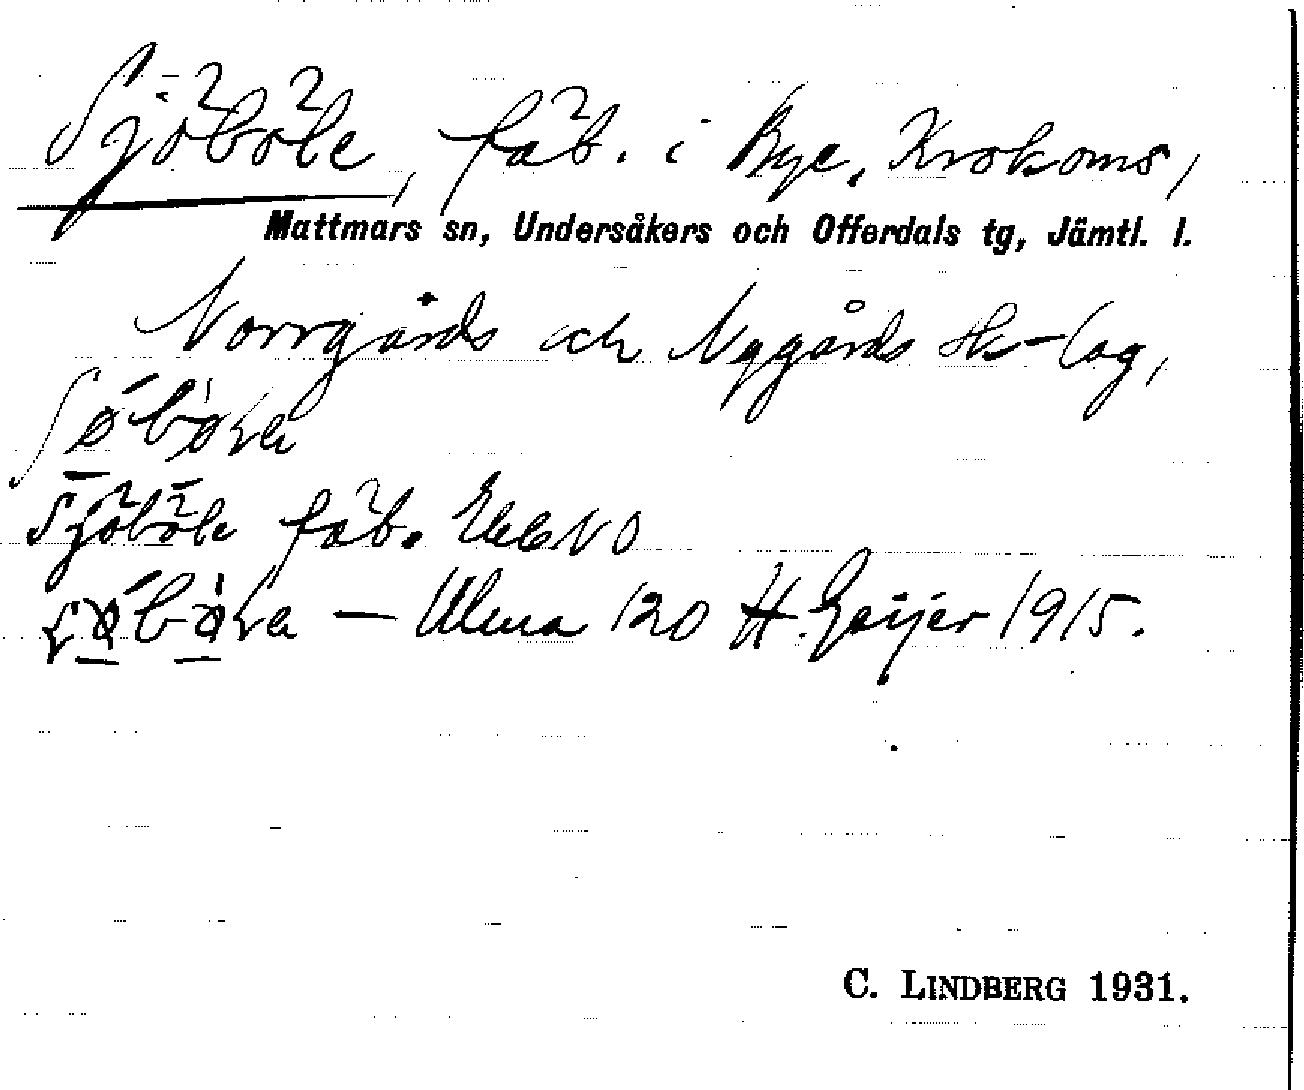 Sjöböle, fäb. i Bye, Krokoms,
Mattmars sn, Undersåkers och Offerdals tg, Jämtl. l.
Norrgårds och Nygårds sk-lag,
Sjöböle fäb. Ekebl NO
— Ulma 120 H. Geijer 1915.
C. LINDBERG 1931.